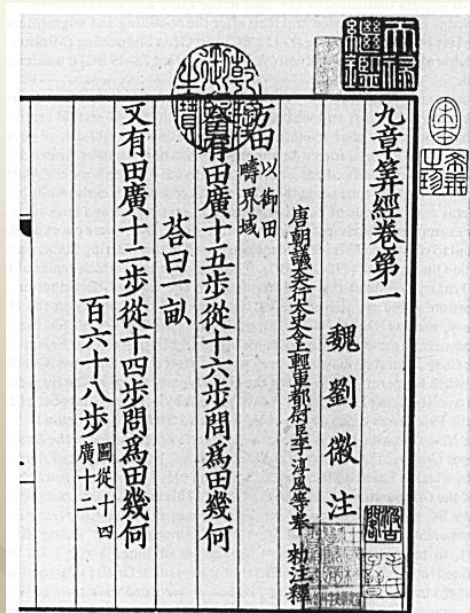 天祿
繼鑑
宋本
希世
之珍
九章筭經卷第一
魏劉徽注
唐朝議大夫行太史令上輕車都尉臣李淳風等奉 勑注釋
乾隆
御覽
之寶
方田以御田
疇界域
今有田廣十五步從十六步問爲田幾何
荅曰一畝
又有田廣十二步從十四步問爲田幾何
百六十八步圖從十四
廣十二